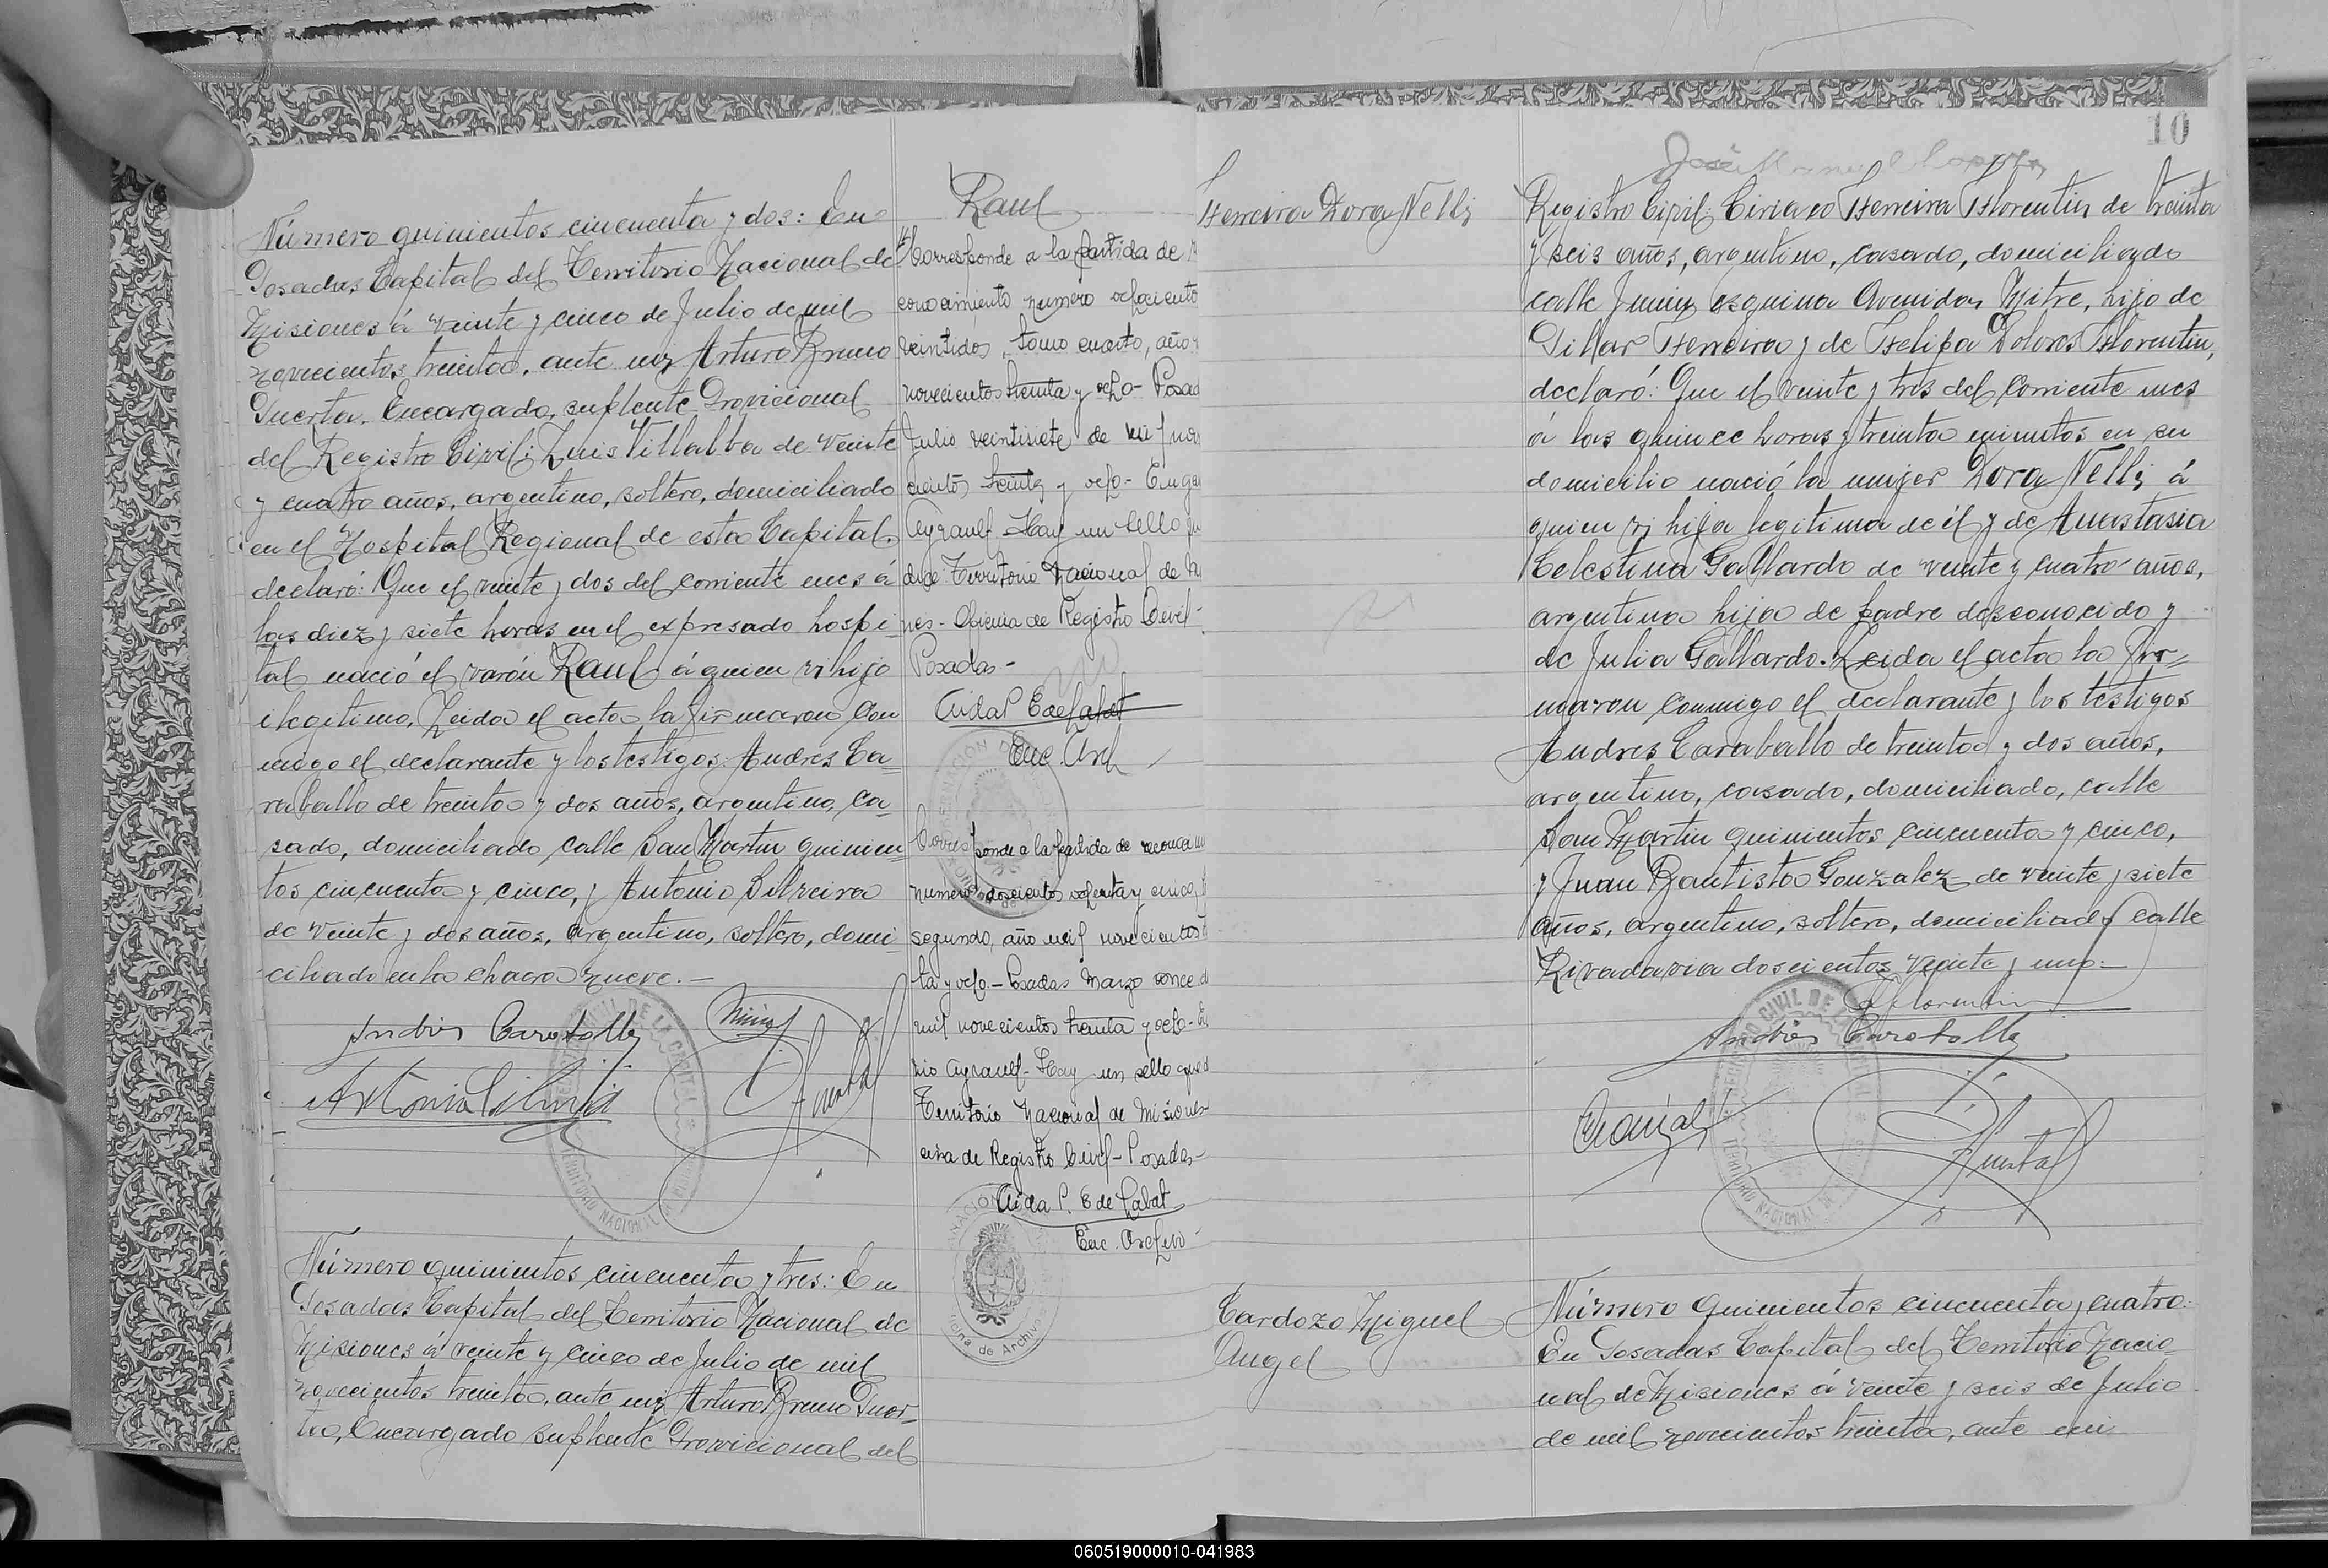 Número quinientos cincuenta y dos: En
Posadas Capital del Territorio Nacional de
Misiones á veinte y cinco de Julio de mil
novecientos treinta, ante mi, Arturo Bruno
Puerta, Encargado suplente Provicional
del Registro Civil: Luis Villalba de veinte
y cuatro años, argentino, soltero, domiciliado
en el Hospital Regional de esta Capital,
declaró: Que el veinte y dos del corriente mes á
las diez y siete horas en el expresado hospi-
tal nació el varón Raul á quien vi hijo
ilegitimo. Leida el acta la firmaron con
migo el declarante y los testigos: Andres Ca-
raballo de treinta y dos años, argentino, ca-
sado, domiciliado calle San Martin quinien-
tos cincuenta y cinco, y Antonio Silveira
de veinte y dos años, argentino, soltero, domi-
ciliado en la chacra nueve.-
Andrés Caraballo
Antonio Silveira
Puerta
Número quinientos cincuenta y tres: En
Posadas Capital del Territorio Nacional de
Misiones á veinte y cinco de Julio de mil
novecientos treinta, ante mi, Arturo Bruno Puer-
ta, Encargado suplente Provicional del
Raul
Corresponde a la partida de
conocimiento numero ochociento
veintidos, tomo cuarto, año
novecientos treinta y ocho- Posad
Julio veintisiete de mil nov
cientos treinta y ocho- Euge
Ayrault- Hay un sello
dice Territorio Nacional de
nes- Oficina de Registro Civil-
Posadas-
Enc. Arch
Corresponde a la partida de reconocim
numero doscientos ochenta y cinco,
segundo, año mil novecientos
ta y ocho- Posadas Marzo once d
mil novecientos treinta y ocho-
nio Ayrault- Hay un sello que d
Territorio Nacional de Misiones
cina de Registro Civil- Posadas-
Aida P. E de Labat
Enc. Archivo-
10
Ferreira Dora Nelli
Registro Civil: Ciriaco Ferreira Florentin de treinta
y seis años, argentino, casado, domiciliado
calle Junin esquina Avenida Mitre, hijo de
Pilar Ferreira y de Felipa Dolores Florentin,
declaró: Que el veinte y tres del corriente mes
á las quince horas y treinta minutos en su
domicilio nació la mujer Dora Nelli á
quien vi hija legitima de él y de Anastasia
Celestina Gallardo de veinte y cuatro años,
argentina hija de padre desconocido y
de Julia Gallardo. Leida el acta la fir-
maron conmigo el declarante y los testigos
Andres Caraballo de treinta y dos años,
argentino, casado, domiciliado, calle
San Martin quinientos cincuenta y cinco,
y Juan Bautista Gonzalez de veinte y siete
años, argentino, soltero, domiciliado calle
Rivadavia doscientos veinte y uno.-
Florentin
Andrés Caraballo
Puerta
Cardozo Miguel
Angel
Número quinientos cincuenta y cuatro:
En Posadas Capital del Territorio Nacio-
nal de Misiones á veinte y seis de Julio
de mil novecientos treinta, ante mi
060519000010-041983